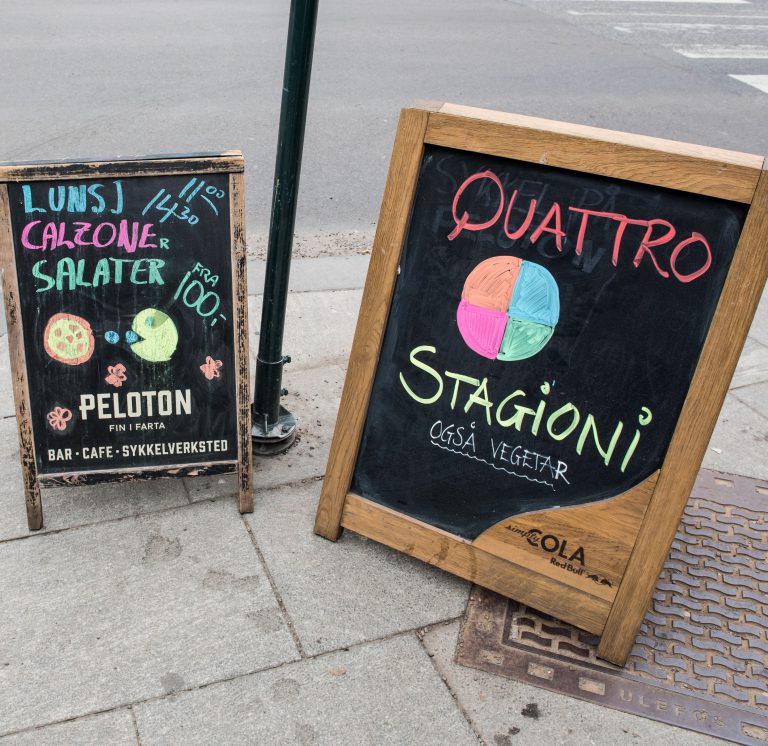 LUNSJ 1100
1430
CALZONER
SALATER
FRA
100,-
PELOTON
FIN I FARTA
BAR · CAFE · SYKKELVERKSTED
QUATTRO
STAGIONI
OGSÅ VEGETAR
simply COLA
Red Bull
ULEFOS